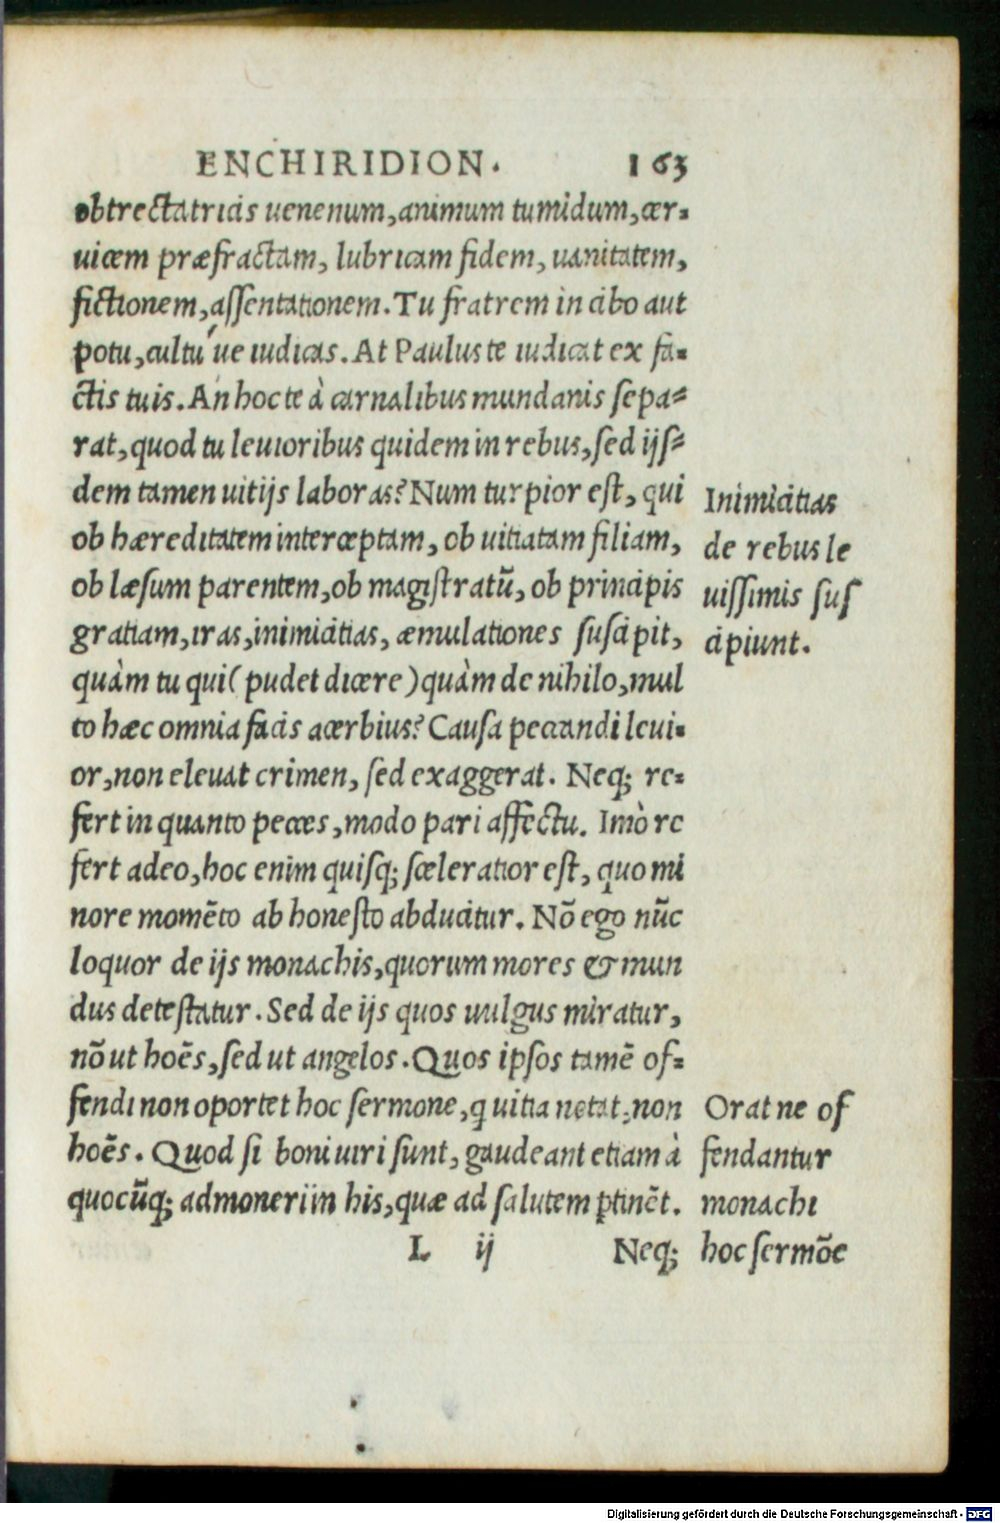 ENCHIRIDION. 163
obtrectatricis uenenum, animum tumidum, cer-
uicem præfractam, lubricam fidem, uanitatem,
fictionem, assentationem. Tu fratrem in cibo aut
potu, cultu ́ue iudicas. At Paulus te iudicat ex fa-
ctis tuis. An hoc te à carnalibus mundanis sepa-
rat, quod tu leuioribus quidem in rebus, sed ijs-
dem tamen uitijs laboras? Num turpior est, qui
ob hæreditatem interceptam, ob uitiatam filiam,
ob læsum parentem, ob magistratũ, ob principis
gratiam, iras, inimicitias, æmulationes suscipit,
quàm tu qui (pudet dicere) quàm de nihilo, mul
to hæc omnia facis acerbius? Causa peccandi leui-
or, non eleuat crimen, sed exaggerat. Neq; re-
fert in quanto pecces, modo pari affectu. Imò re
fert adeo, hoc enim quisq; sceleratior est, quo mi
nore momẽto ab honesto abducitur. Nõ ego nũc
loquor de ijs monachis, quorum mores & mun
dus detestatur. Sed de ijs quos uulgus miratur,
nõ ut hoẽs, sed ut angelos. Quos ipsos tamẽ of-
fendi non oportet hoc sermone, q uitia notat, non
hoẽs. Quod si boni uiri sunt, gaudeant etiam à
quocũq; admoneri in his, quæ ad salutem ptinẽt.
L ij Neq;
Inimicitias
de rebus le
uissimis sus
cipiunt.
Orat ne of
fendantur
monachi
hoc sermõe
Digitalisierung gefördert durch die Deutsche Forschungsgemeinschaft - DFG